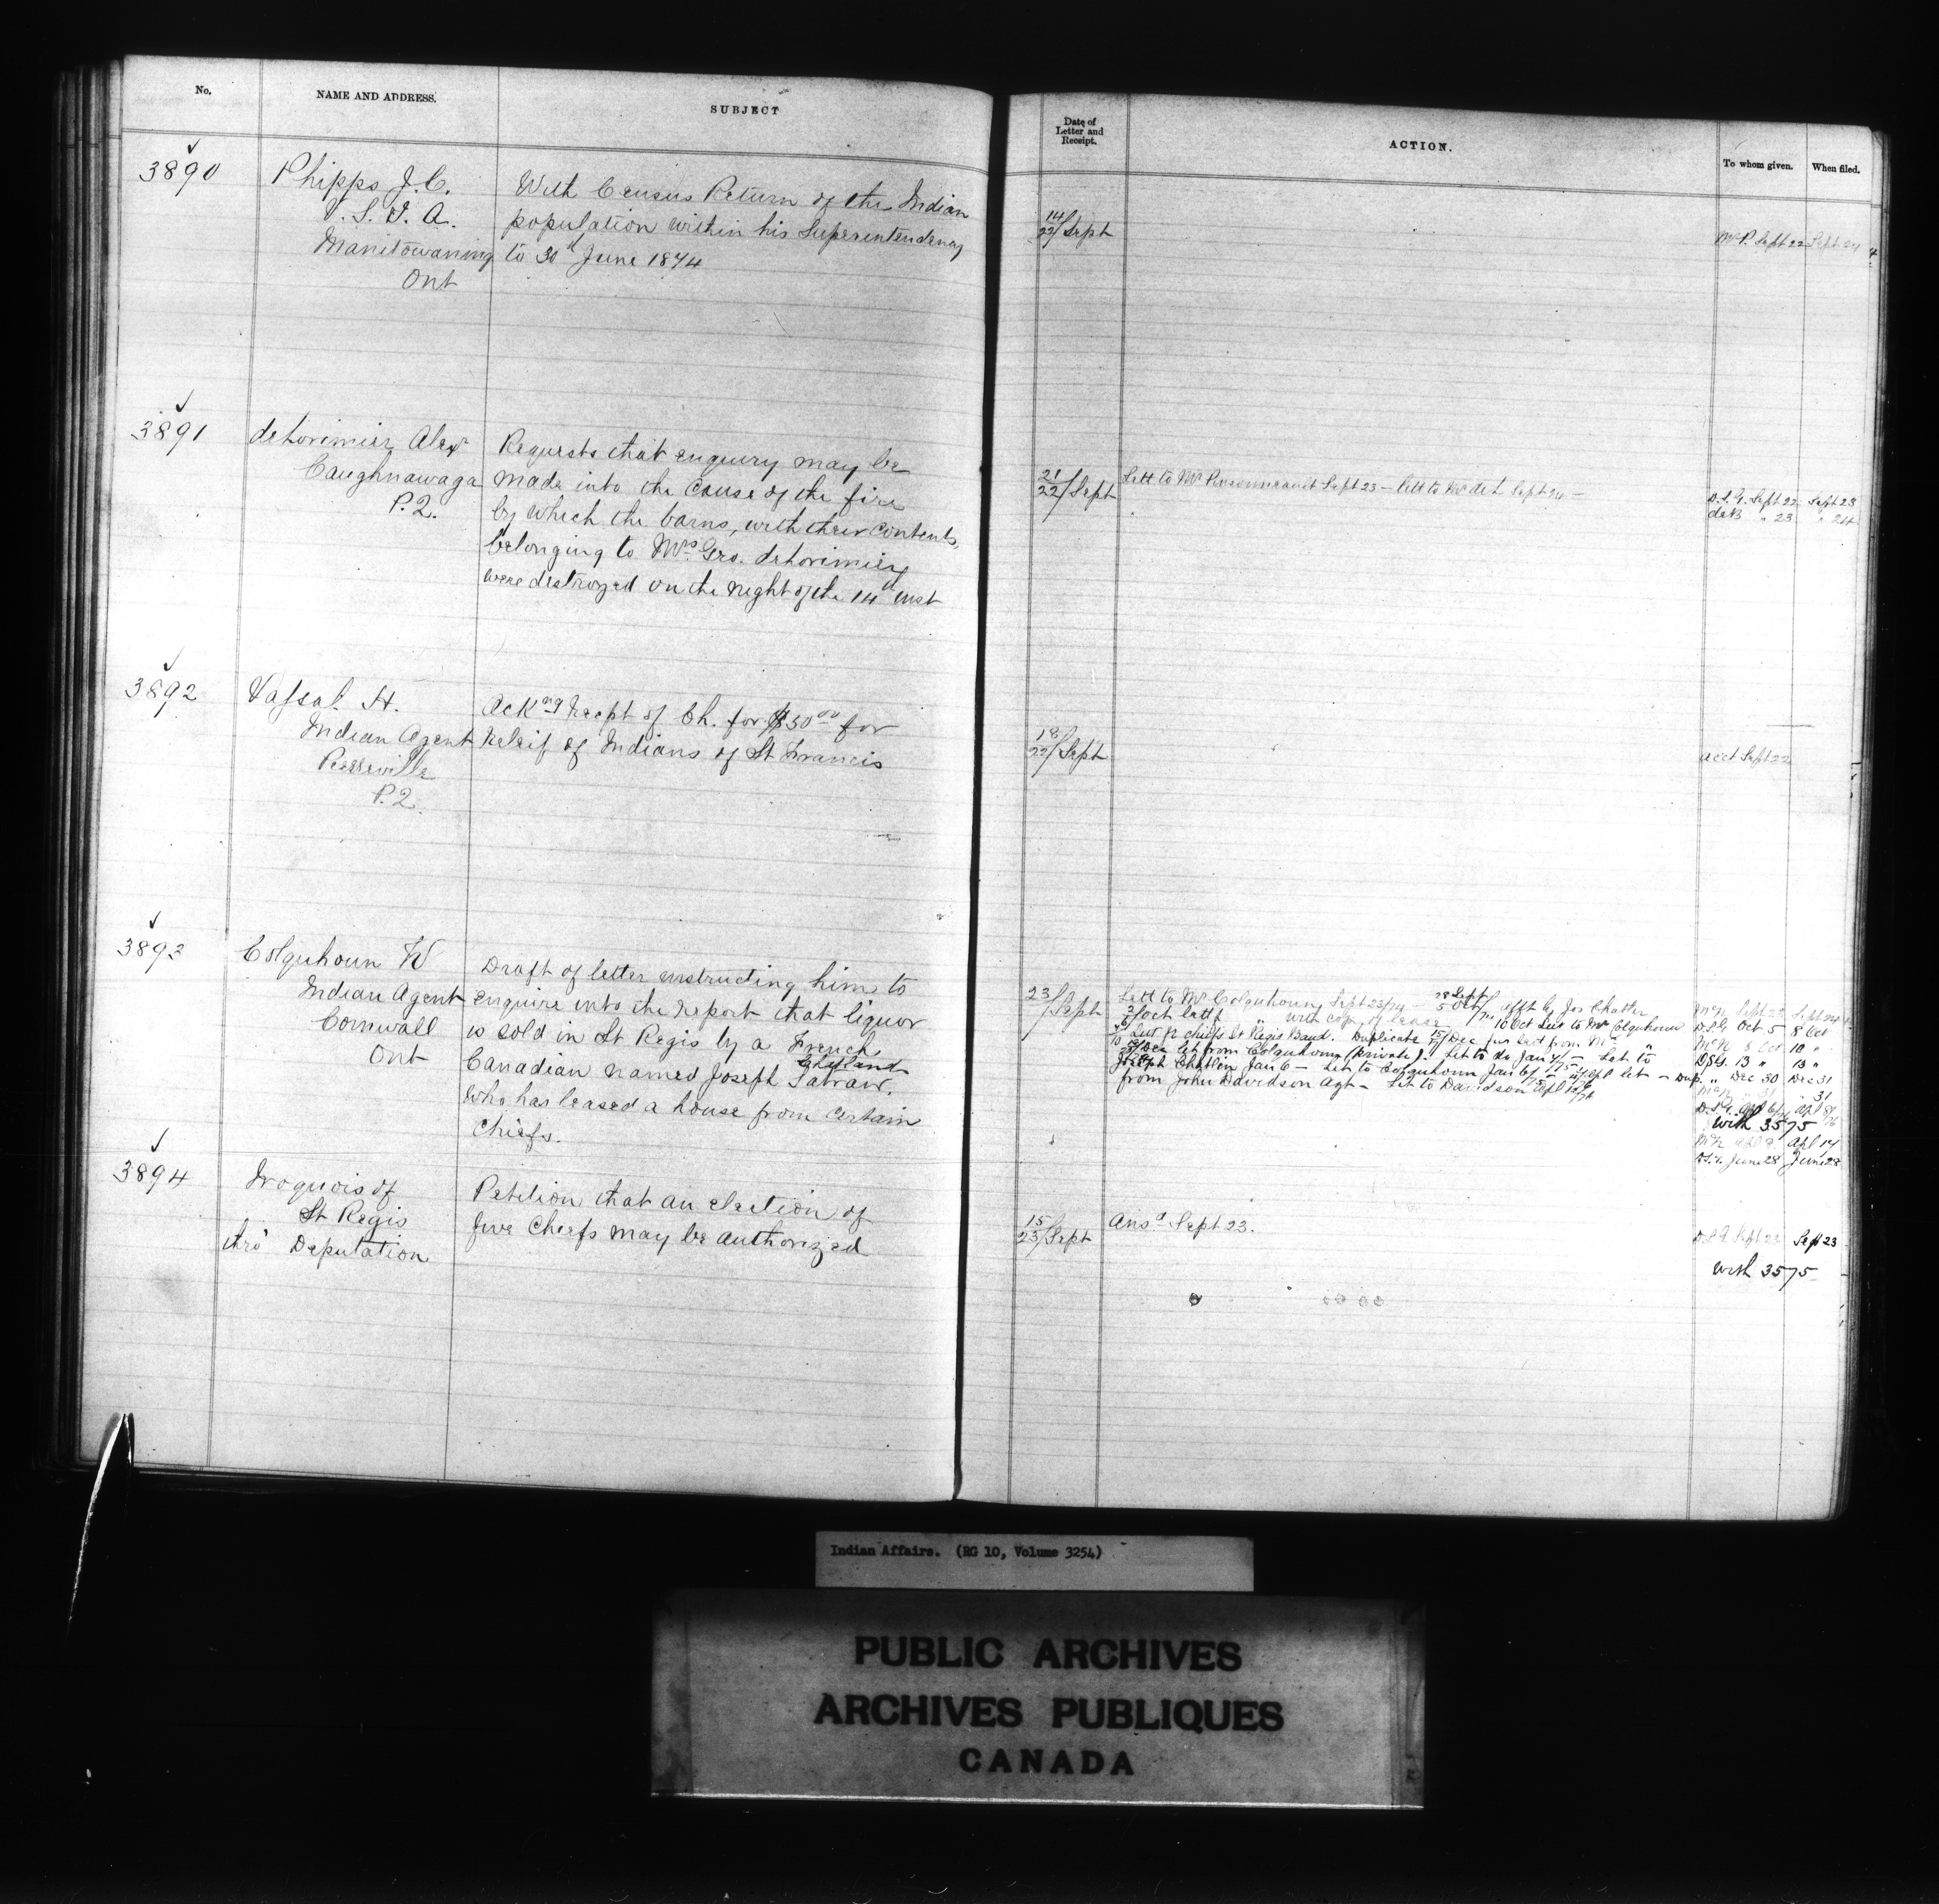 No.
NAME AND ADDRESS.
SUBJECT
Date of
Letter and
Receipt.
ACTION.
To whom given.
When filed.
3890
Phipps J. C.
V. S. I. A.
Manitowaning
Ont
With Census Return of the Indian
population within his Superentendency
to 30th June 1874
14
22/Sept
McP. Sept 22 Sept 24
3891
deLorimier Alex
Caughnawaga
P.Q.
Requests that enquiry may be
made into the cause of the fire
by which the barns, with their contents,
belonging to Mrs Geo. deLorimier
were destroyed on the night of the 14th inst
21
22/Sept
Lett to Mr Pinsonneault Sept 23 — lett to Mr deL Sept 24 —
D.S.G. Sept 22 Sept 23
deB " 23 " 24
3892
Vassal H.
Indian Agent
Pierreville
P.Q.
Ackng Recpt of Ch. for $50.00 for
Releif of Indians of St Francis
18
22/Sept
acct Sept 22
3893
Colquhoun W
Indian Agent
Cornwall
Ont
Draft of letter instructing him to
enquire into the report that liquor
is sold in St Regis by a French
Canadian named Joseph Satraw,
who has leased a house from certain
Chiefs.
23
/Sept
Lett to Mr Colquhoun Sept 23/74 — 28 Sept
5 Oct/ afft by Jos Chatlen
10 Oct Let to Mr Colquhoun
Let fr chiefs St Regis Band. Duplicate 15/Dec
Let from Colquhoun (private). Let to do Jan 4/75 — Let to
Joseph Chatlen Jan 6 — Let to Colquhoun Jan 6/75 — Apl let —
from John Davidson Agt — Let to Davidson Apl
McN Sept 23 Sept 24
D.S.G. Oct 5 8 Oct
McN 8 Oct 10 "
DSG. 13 " 13 "
Dup. " Dec 30 Dec 31
" 31 " 31
With 3575
Apl 14
June 28 June 28
3894
Iroquois of
St Regis
thro' Deputation
Petition that an election of
five Chiefs may be authorized
15
23/Sept
Ansd Sept 23.
D.S.G. Sept 23 Sept 23
With 3575
Indian Affairs. (RG 10, Volume 3254)
PUBLIC ARCHIVES
ARCHIVES PUBLIQUES
CANADA